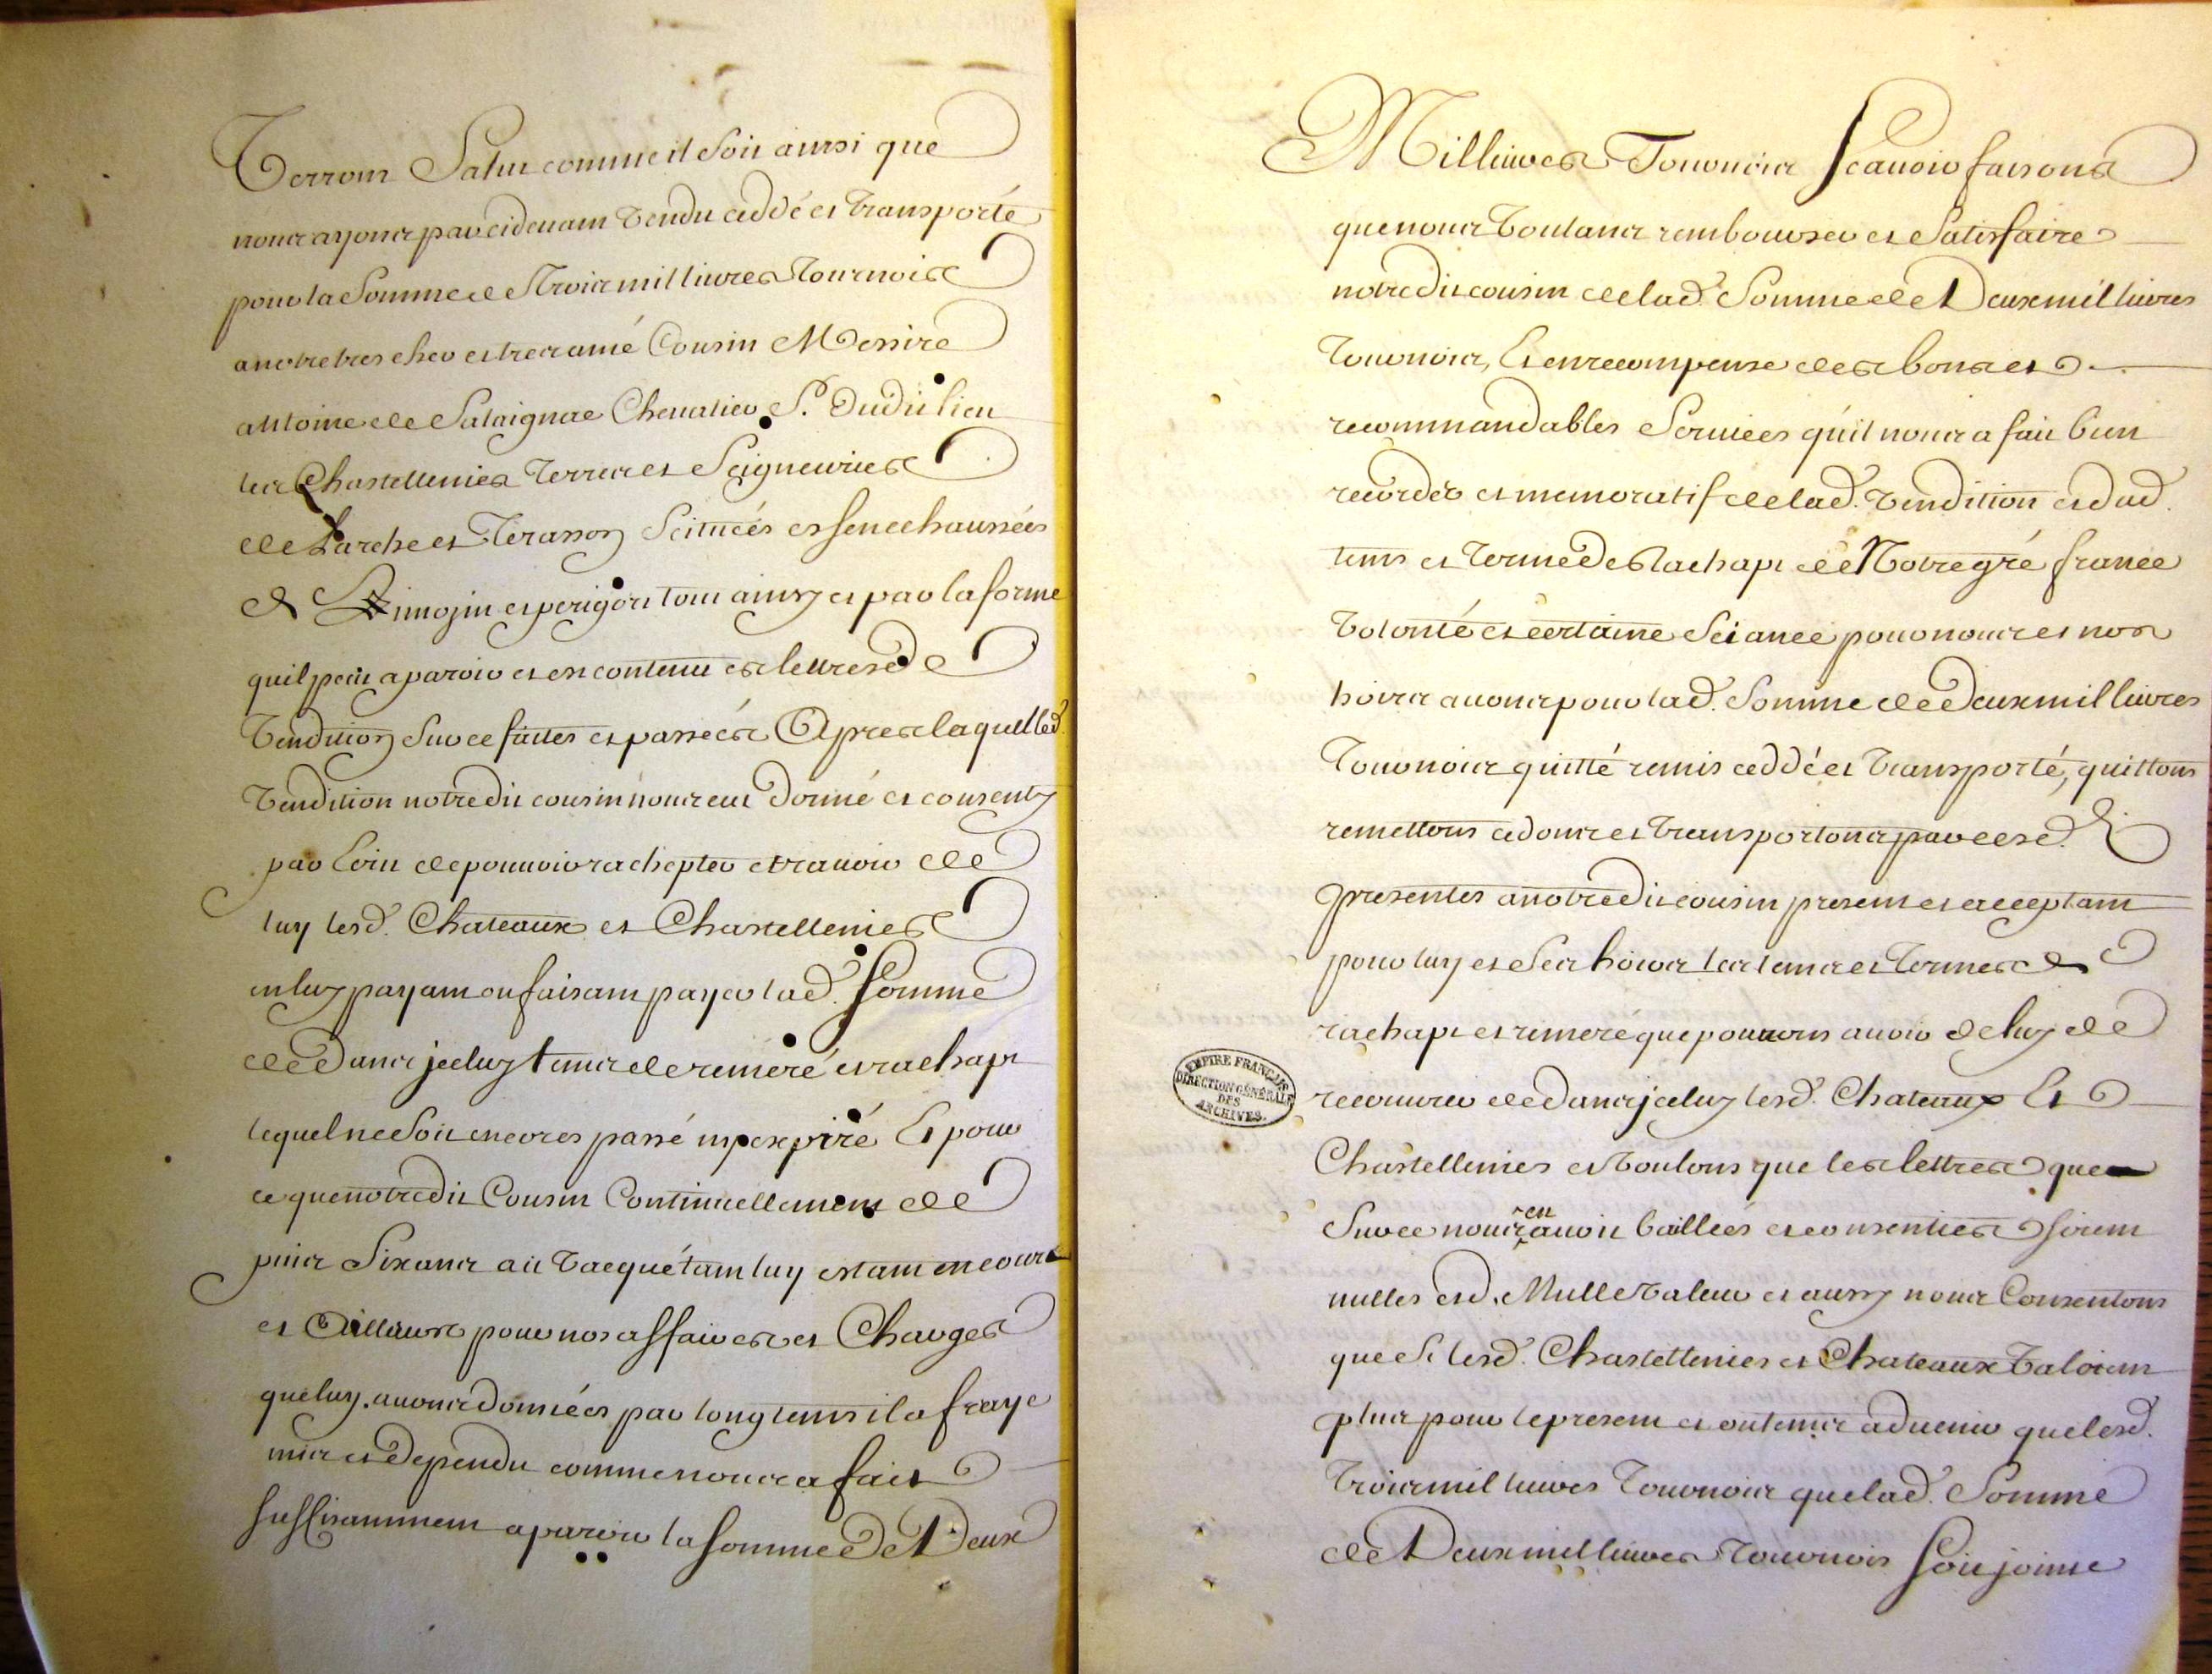 Verront Salut comme il soit ainsi que
nous ayons par cidevant vendu ceddé et transporté
pour la Somme de Trois mil livres Tournois
a notre tres cher et tres amé Cousin Messire
antoine de Salaignac Chevalier Sr. Dudit lieu
les Chastellenies Terres et Seigneuries
de Larche et Terasson Scituées es senechaussées
de Limozin et perigort tout ainsy et par la forme
quil peut aparoir et en contenu es lettres de
Vendition Sur ce faites et passées Apres laquelled.
Vendition notredit cousin nous eut donné et consenty
par loin de pouvoir rachepter et ravoir de
luy lesd. Chateaux et Chastellenies
en luy payant ou faisant payer lad. somme
de dans jceluy tems de reméré et rachapt
lequel ne Soit encores passé ny expiré Et pour
ce que notredit Cousin Continuellement de
puis Six ans ait vacqué tant luy estant en cour
et Ailleurs pour nos affaires et Charges
que luy avons données par longtems il a fraye
mis et dependu comme nous a fait
suffisamment aparoir la somme de Deux
Mil livres Tournois Scavoir faisons
que nous Voulans rembourser et Satisfaire
notredit cousin de lad. Somme de Deux mil livres
Tournois, Et en recompense des bons et
recommandables Services qu'il nous a fait bien
recordés et memoratif de lad. Vendition et dud.
tems et Terme de Rachapt de Notre gré france
Volonté et certaine Sciance pour nous et nos
hoirs avons pour lad. Somme de Deux mil livres
Tournois quitté remis ceddé et Transporté, quittons
remettons cedons et Transportons par cesd.
presentes a notredit cousin present et acceptant
pour luy et Ses hoirs les tems et Termes de
rachapt et remeré que pouvons avoir de luy de
recouvrer de dans jceluy lesd. Chateaux Et
Chastellenies et Voulons que les lettres que
Sur ce nous en avoit baillées et consenties soient
nulles et d. Nulle Valeur et aussy nous Consentons
que Si lesd. Chastellenies et Chateaux Valoient
plus pour le present et ou tems advenir que lesd.
Trois mil livres Tournois que lad. Somme
de Deux mil livres Tournois Soit jointe
EMPIRE FRANÇAIS
DIRECTION GÉNÉRALE
DES
ARCHIVES.